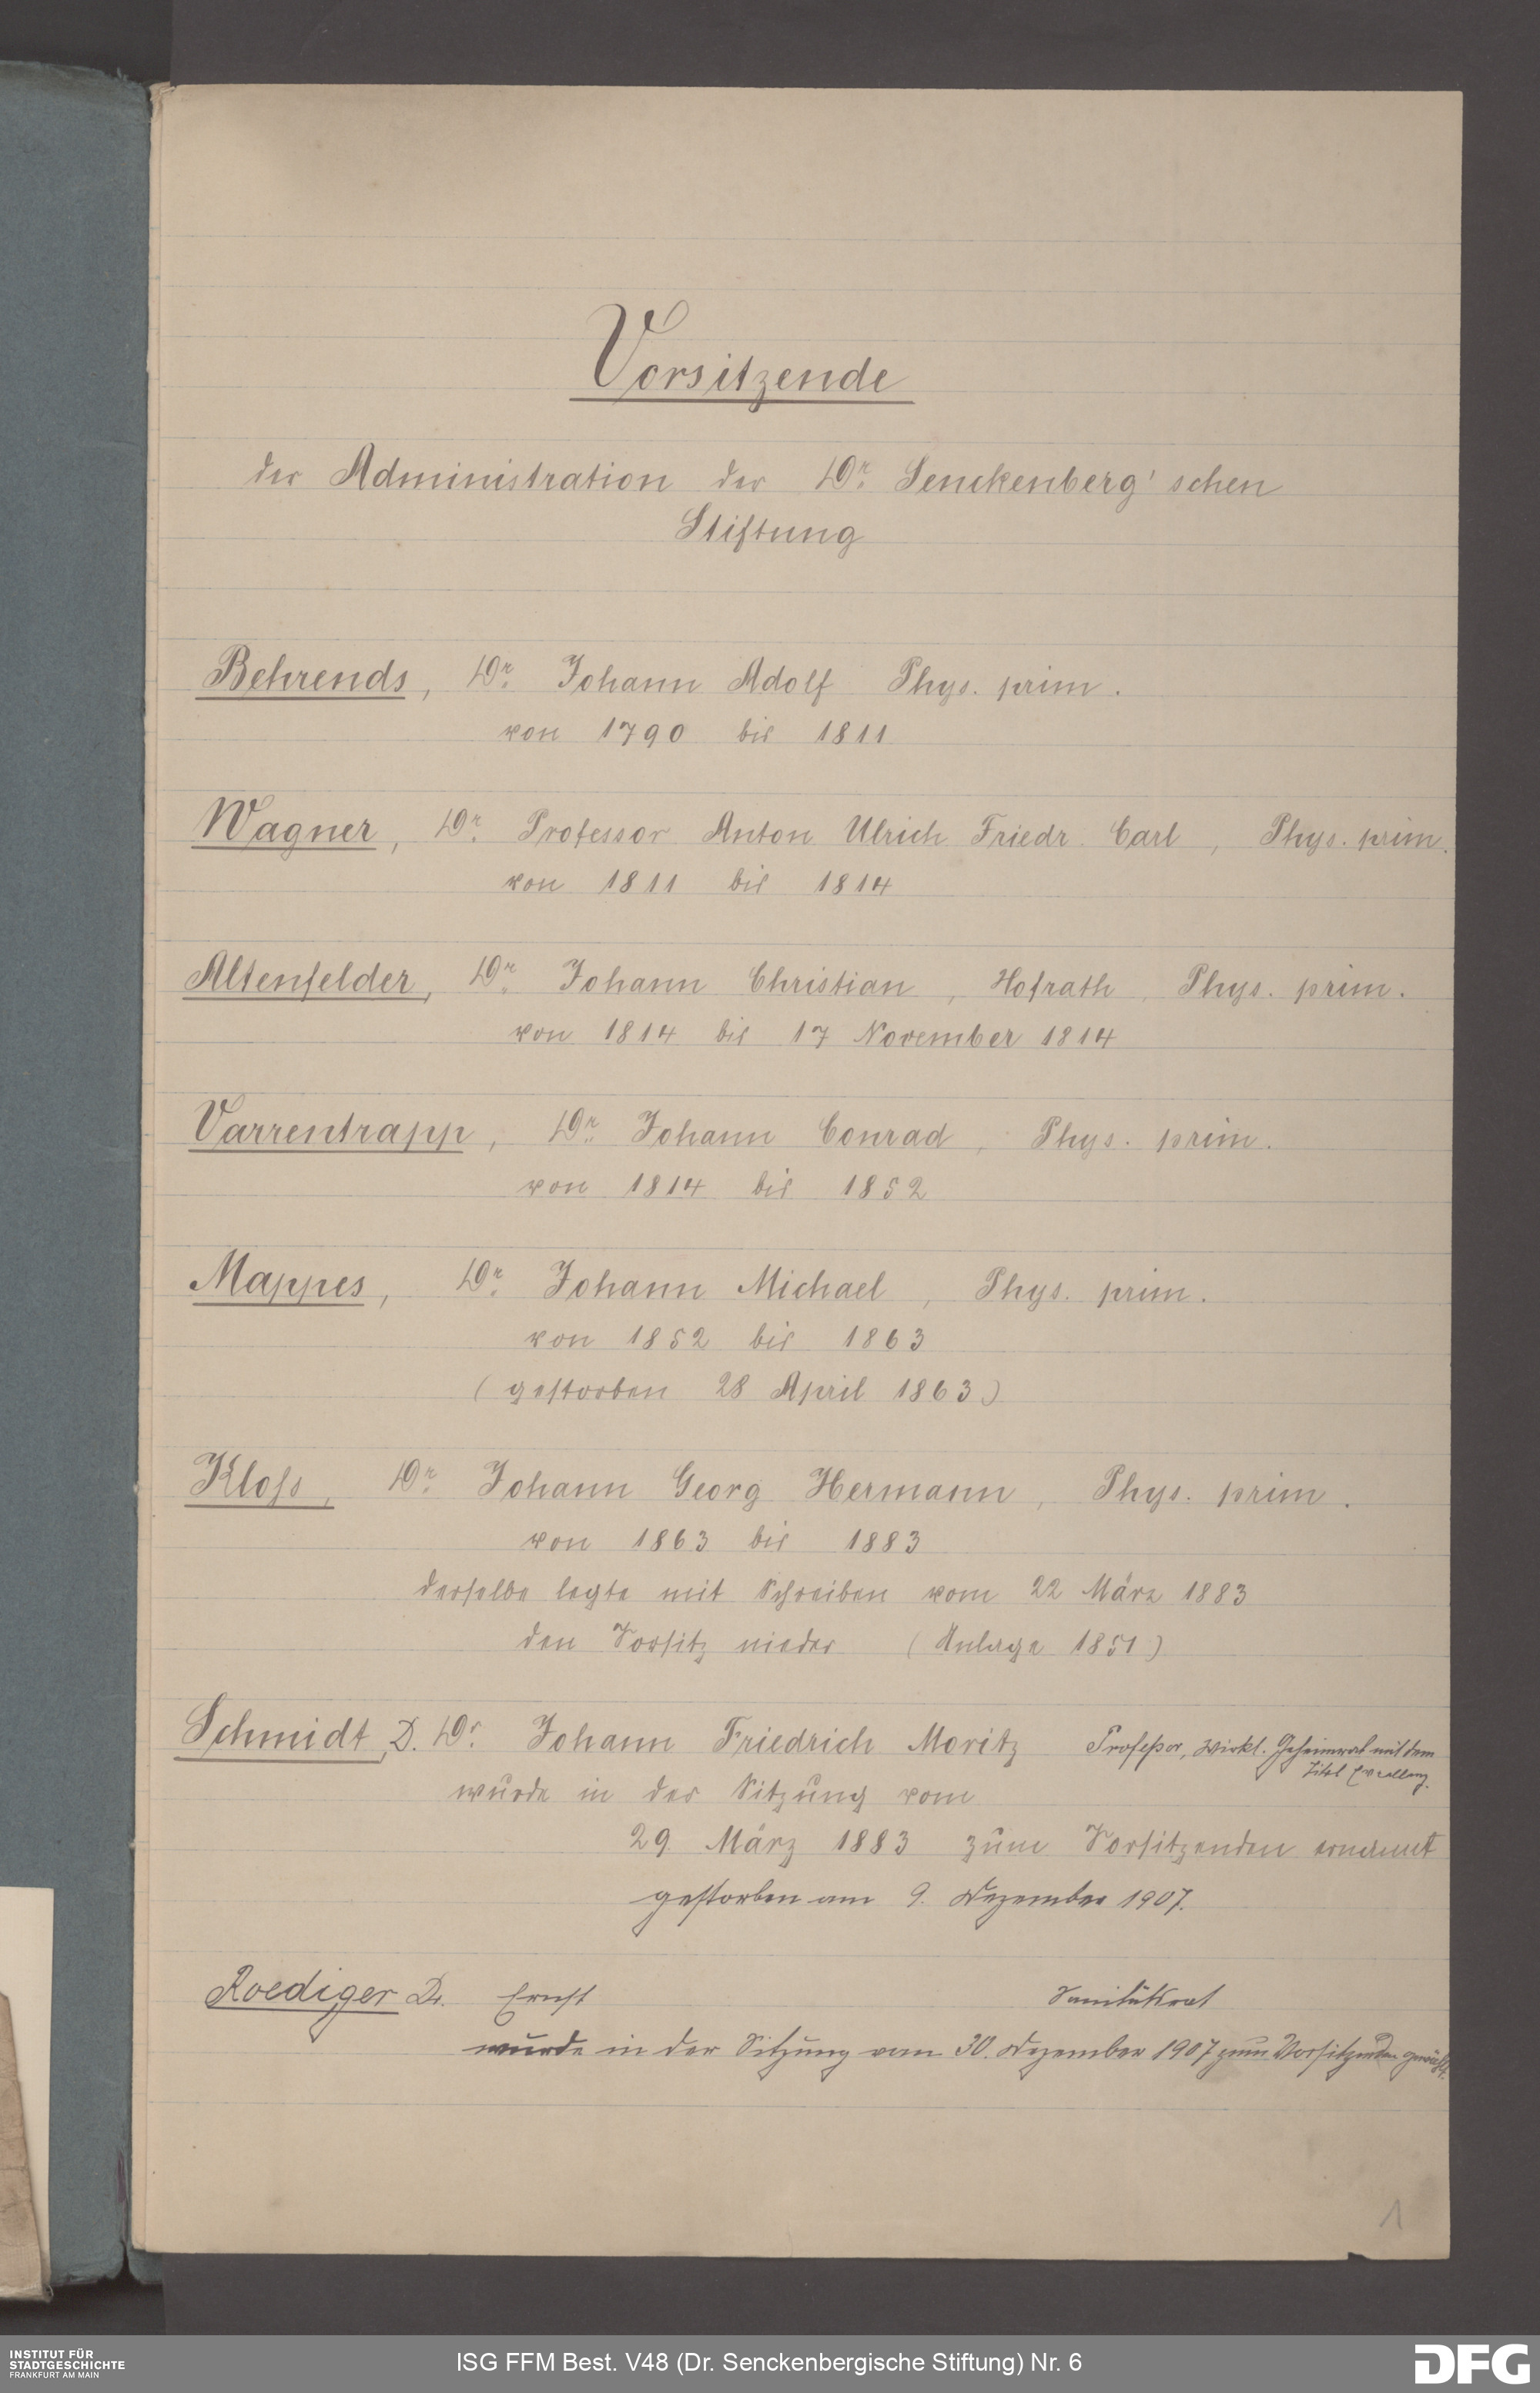 Vorsitzende
der Administration der Dr. Senckenberg'schen
Stiftung
Behrends, Dr. Johann Adolf Phys. prim.
von 1790 bis 1811
Wagner, Dr. Professor Anton Ulrich Friedr. Carl, Phys. prim.
von 1811 bis 1814
Altenfelder, Dr. Johann Christian, Hofrath, Phys. prim.
von 1814 bis 17 November 1814
Varrentrapp, Dr. Johann Conrad, Phys. prim.
von 1814 bis 1852
Mappes, Dr. Johann Michael, Phys. prim.
von 1852 bis 1863
(gestorben 28 April 1863)
Kloſs, Dr. Johann Georg Hermann, Phys. prim.
von 1863 bis 1883
derselbe legte mit Schreiben vom 22 März 1883
den Vorsitz nieder (Anlage 1851)
Schmidt, D. Dr. Johann Friedrich Moritz Profeſsor, Wirkl. Geheimrat mit dem
Titel Excellenz.
wurde in der Sitzung vom
29 März 1883 zum Vorsitzenden ernannt
gestorben am 9. Dezember 1907.
Roediger Dr. Ernst Sanitätsrat
wurde in der Sitzung vom 30. Dezember 1907 zum Vorsitzenden gewählt.
1
INSTITUT FÜR
STADTGESCHICHTE
FRANKFURT AM MAIN
ISG FFM Best. V48 (Dr. Senckenbergische Stiftung) Nr. 6
DFG